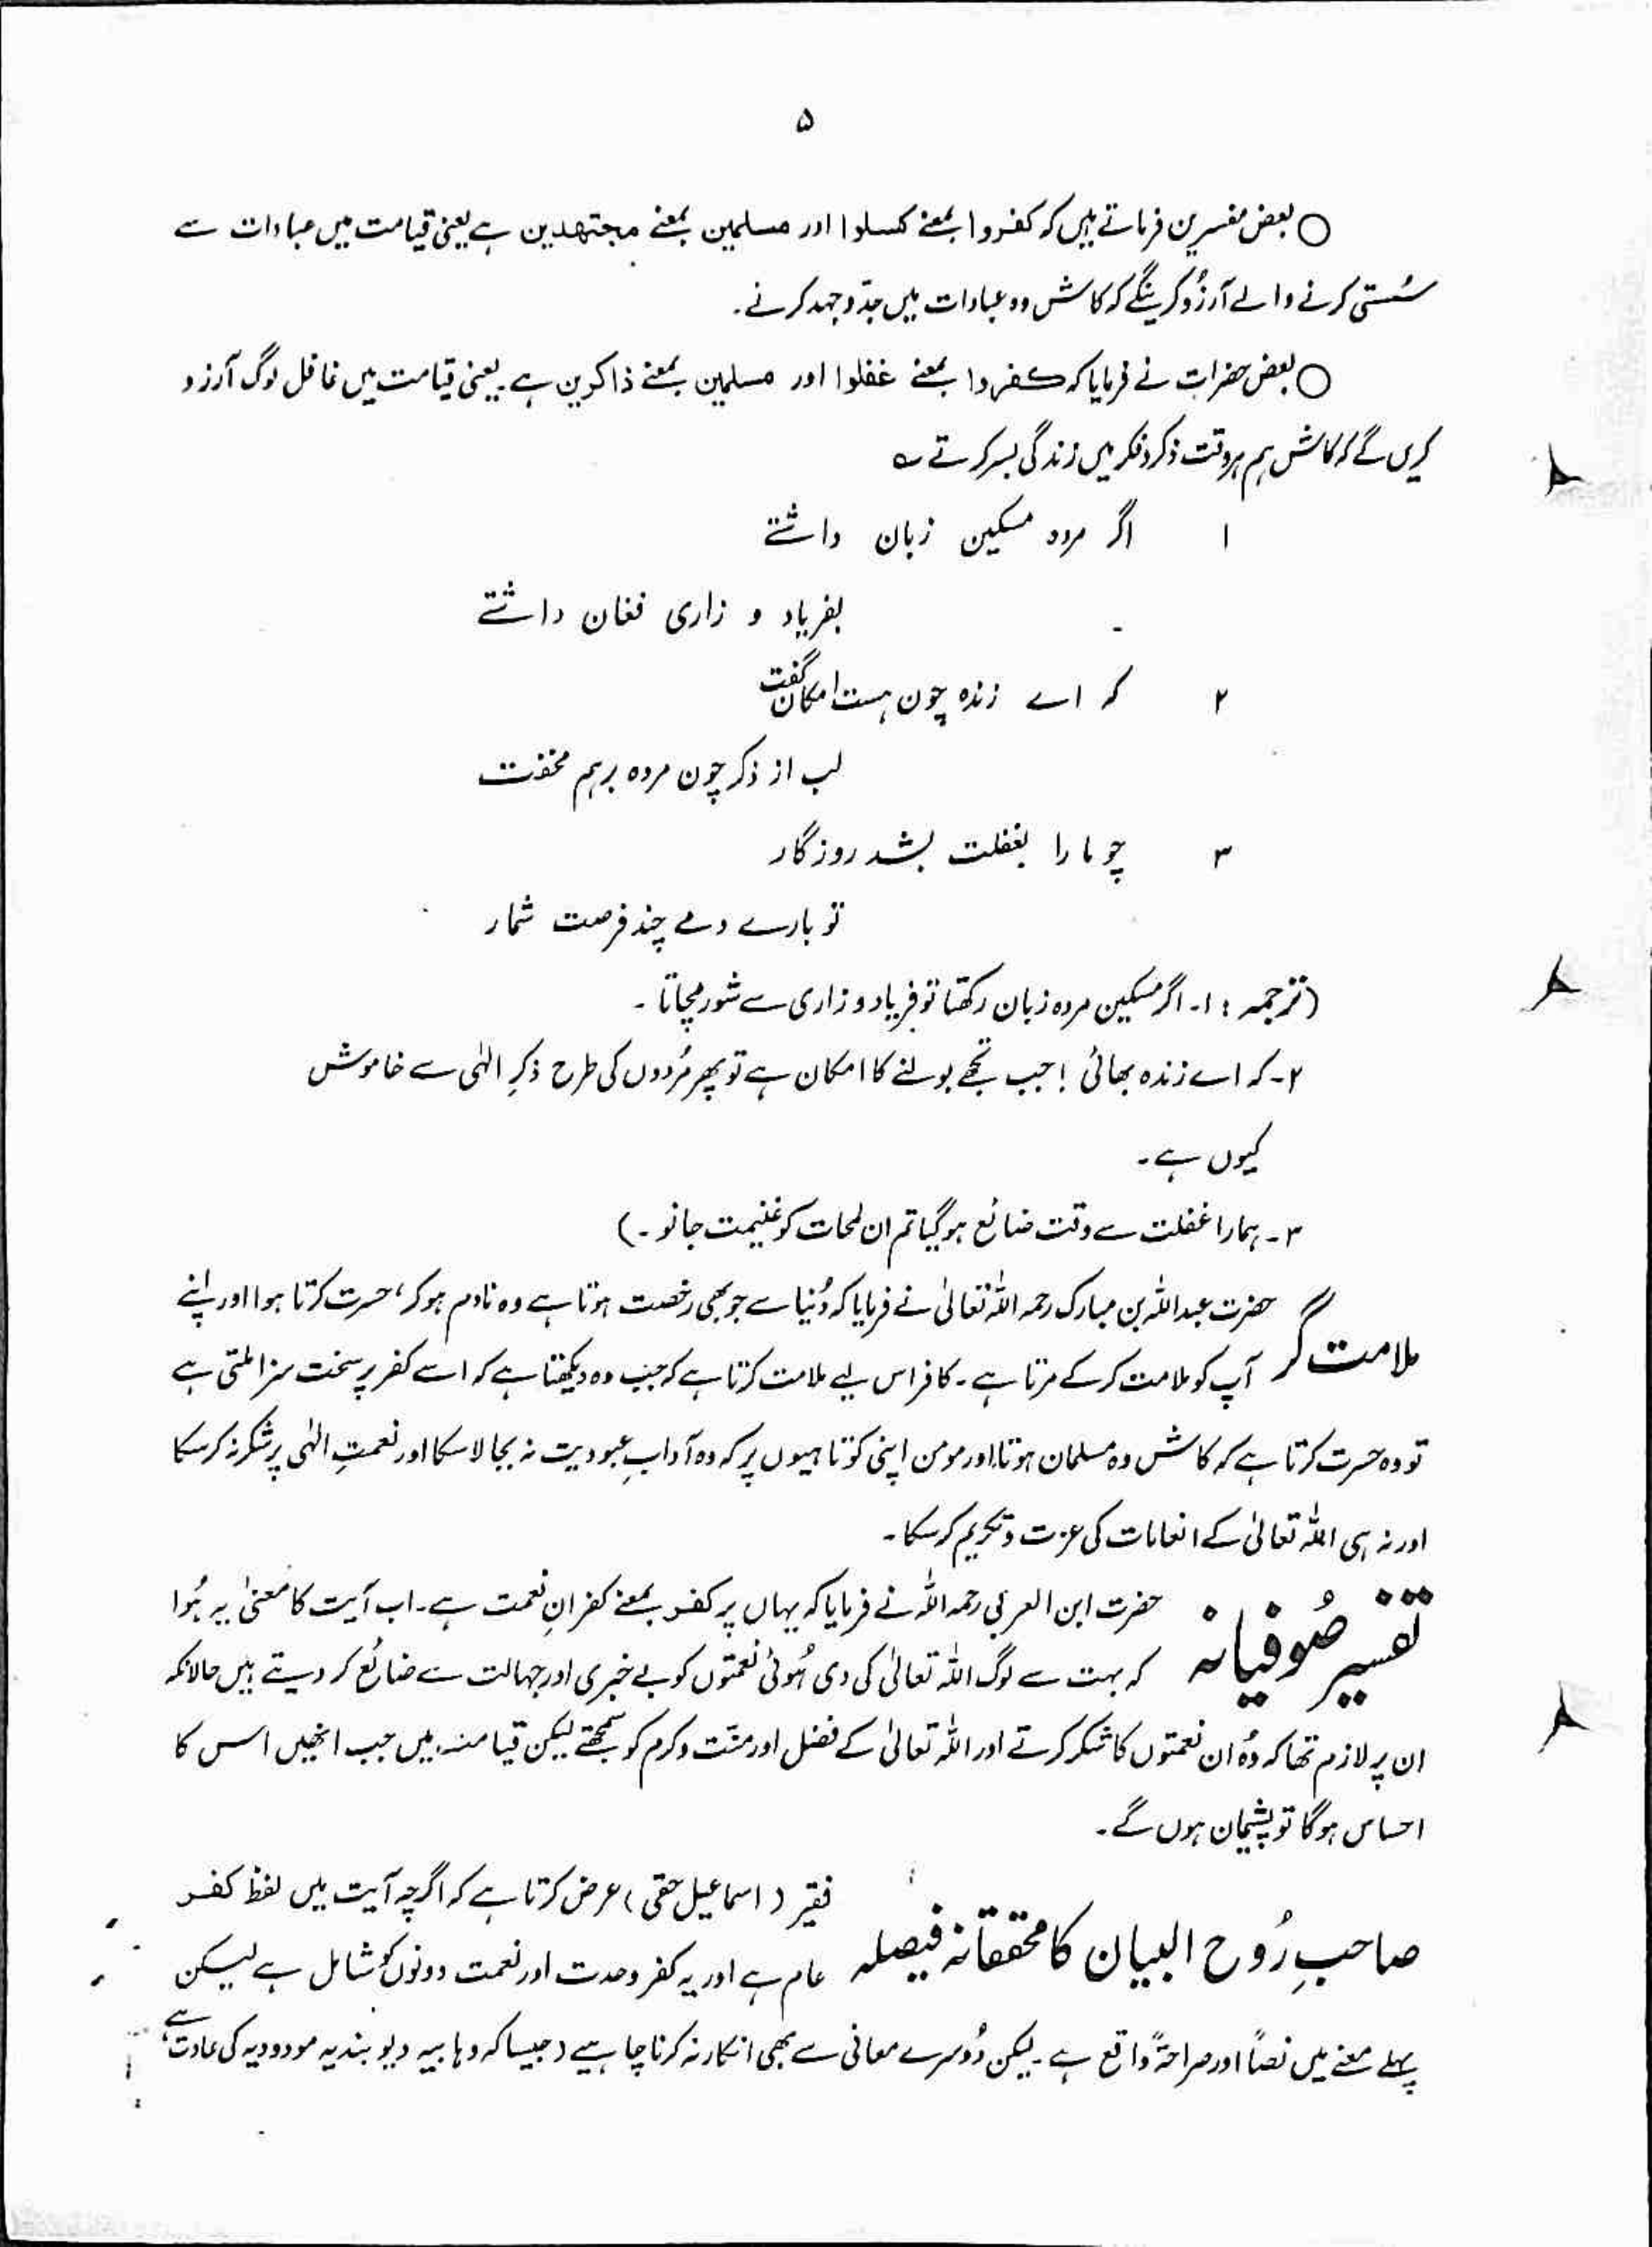 ۵
○ بعض مفسرین فرماتے ہیں کہ کفروا بمعنے کسلوا اور مسلمین بمعنے مجتھدین ہے یعنی قیامت میں عبادات سے
سُستی کرنے والے آرزُو کرینگے کہ کاش وہ عبادات میں جدّ و جہد کرنے۔
○ بعض حضرات نے فرمایا کہ کفروا بمعنے غفلوا اور مسلمین بمعنے ذاکرین ہے۔ یعنی قیامت میں غافل لوگ آرزو
کریں گے کہ کاش ہم ہر وقت ذکر و فکر میں زندگی بسر کرتے ؎
۱ اگر مردہ مسکین زبان داشتے
بفریاد و زاری فغان داشتے
۲ کہ اے زندہ چون ہست امکان گفت
لب از ذکر چون مردہ برہم مخفت
۳ چو ما را بغفلت بشد روزگار
تو بارے دمے چند فرصت شمار
(ترجمہ : ۱۔ اگر مسکین مردہ زبان رکھتا تو فریاد و زاری سے شور مچاتا ۔
۲۔ کہ اے زندہ بھائی ! جب تجھے بولنے کا امکان ہے تو پھر مُردوں کی طرح ذکرِ الٰہی سے خاموش
کیوں ہے۔
۳۔ ہمارا غفلت سے وقت ضائع ہو گیا تم ان لمحات کو غنیمت جانو ۔)
حضرت عبداللہ بن مبارک رحمہ اللہ تعالیٰ نے فرمایا کہ دُنیا سے جو بھی رخصت ہوتا ہے وہ نادم ہو کر، حسرت کرتا ہوا اور اپنے
ملامت گر آپ کو ملامت کر کے مرتا ہے۔ کافر اس لیے ملامت کرتا ہے کہ جب وہ دیکھتا ہے کہ اسے کفر پر سخت سزا ملتی ہے
تو وہ حسرت کرتا ہے کہ کاش وہ مسلمان ہوتا اور مومن اپنی کوتاہیوں پر کہ وہ آدابِ عبودیت نہ بجا لا سکا اور نعمتِ الٰہی پر شکر نہ کر سکا
اور نہ ہی اللہ تعالیٰ کے انعامات کی عزت و تکریم کر سکا۔
تفسیر صُوفیانہ حضرت ابن العربی رحمہ اللہ نے فرمایا کہ یہاں پر کفر بمعنے کفرانِ نعمت ہے۔ اب آیت کا معنیٰ یہ ہُوا
کہ بہت سے لوگ اللہ تعالیٰ کی دی ہُوئی نعمتوں کو بے خبری اور جہالت سے ضائع کر دیتے ہیں حالانکہ
ان پر لازم تھا کہ وُہ ان نعمتوں کا شکر کرتے اور اللہ تعالیٰ کے فضل اور منّت و کرم کو سمجھتے لیکن قیامت میں جب انھیں اس کا
احساس ہوگا تو پشیمان ہوں گے۔
فقیر (اسماعیل حقی) عرض کرتا ہے کہ اگرچہ آیت میں لفظ کفر
صاحبِ رُوح البیان کا محققانہ فیصلہ عام ہے اور یہ کفر وحدت اور نعمت دونوں کو شامل ہے لیکن
پہلے معنے میں نصاً اور صراحۃً واقع ہے۔ لیکن دُوسرے معانی سے بھی انکار نہ کرنا چاہیے (جیسا کہ وہابیہ دیوبندیہ مودودیہ کی عادت ہے